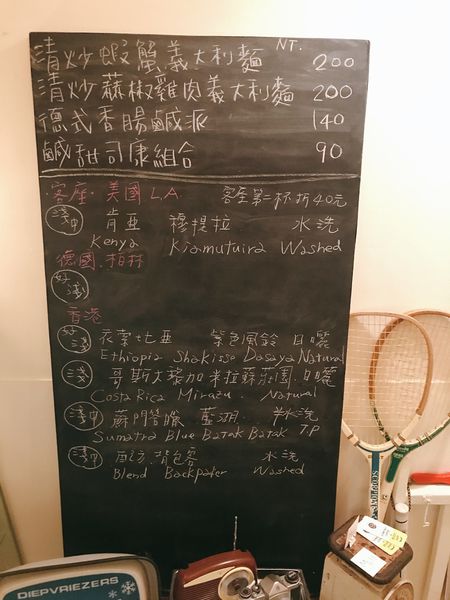 NT.
清炒蝦蟹義大利麵 200
清炒蘇椒雞肉義大利麵 200
德式香腸鹹派 140
鹹甜司康組合 90
客座·美國 LA 客座第二杯折40元
淺中 肯亞 穆提拉 水洗
Kenya Kiamutuira Washed
德國.柏林
好淺
香港
好淺 衣索比亞 紫色風鈴 日曬
Ethiopia Shakisso Dasaya Natural
淺 哥斯大黎加 米拉蘇莊園 日曬
Costa Rica Mirazu Natural
淺中 蘇門答臘 藍湖 半水洗
Sumatra Blue Batak Batak TP
淺中 配方.背包客 水洗
Blend Backpaker Washed
DIEPVRIEZERS